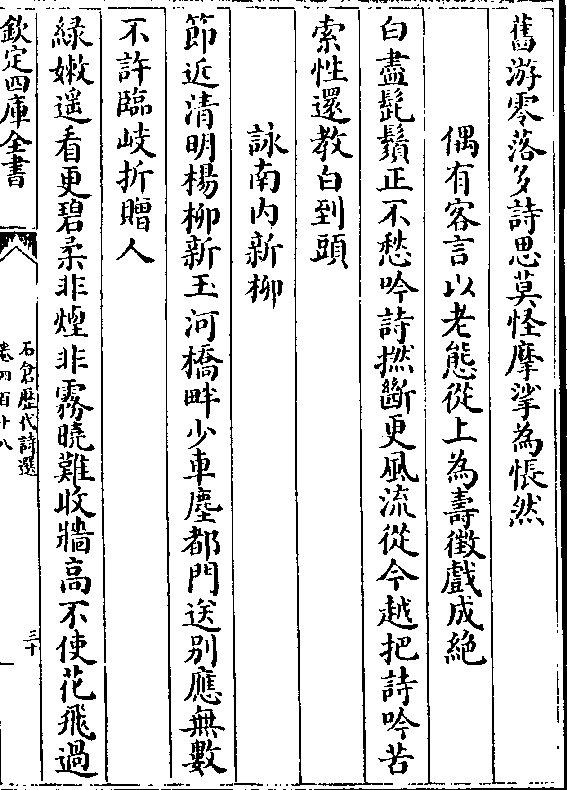 舊游零落多詩思莫怪摩挲為悵然
偶有客言以老態從上為壽徴戲成絶
白盡髭鬚正不愁吟詩撚斷更風流從今越把詩吟苦
索性還教白到頭
詠南内新柳
節近清明楊柳新玉河橋畔少車塵都門送别應無數
不許臨岐折贈人
緑嫩遥看更碧柔非煙非霧曉難收牆高不使花飛過
欽定四庫全書
石倉歴代詩選
卷四百十八
三十